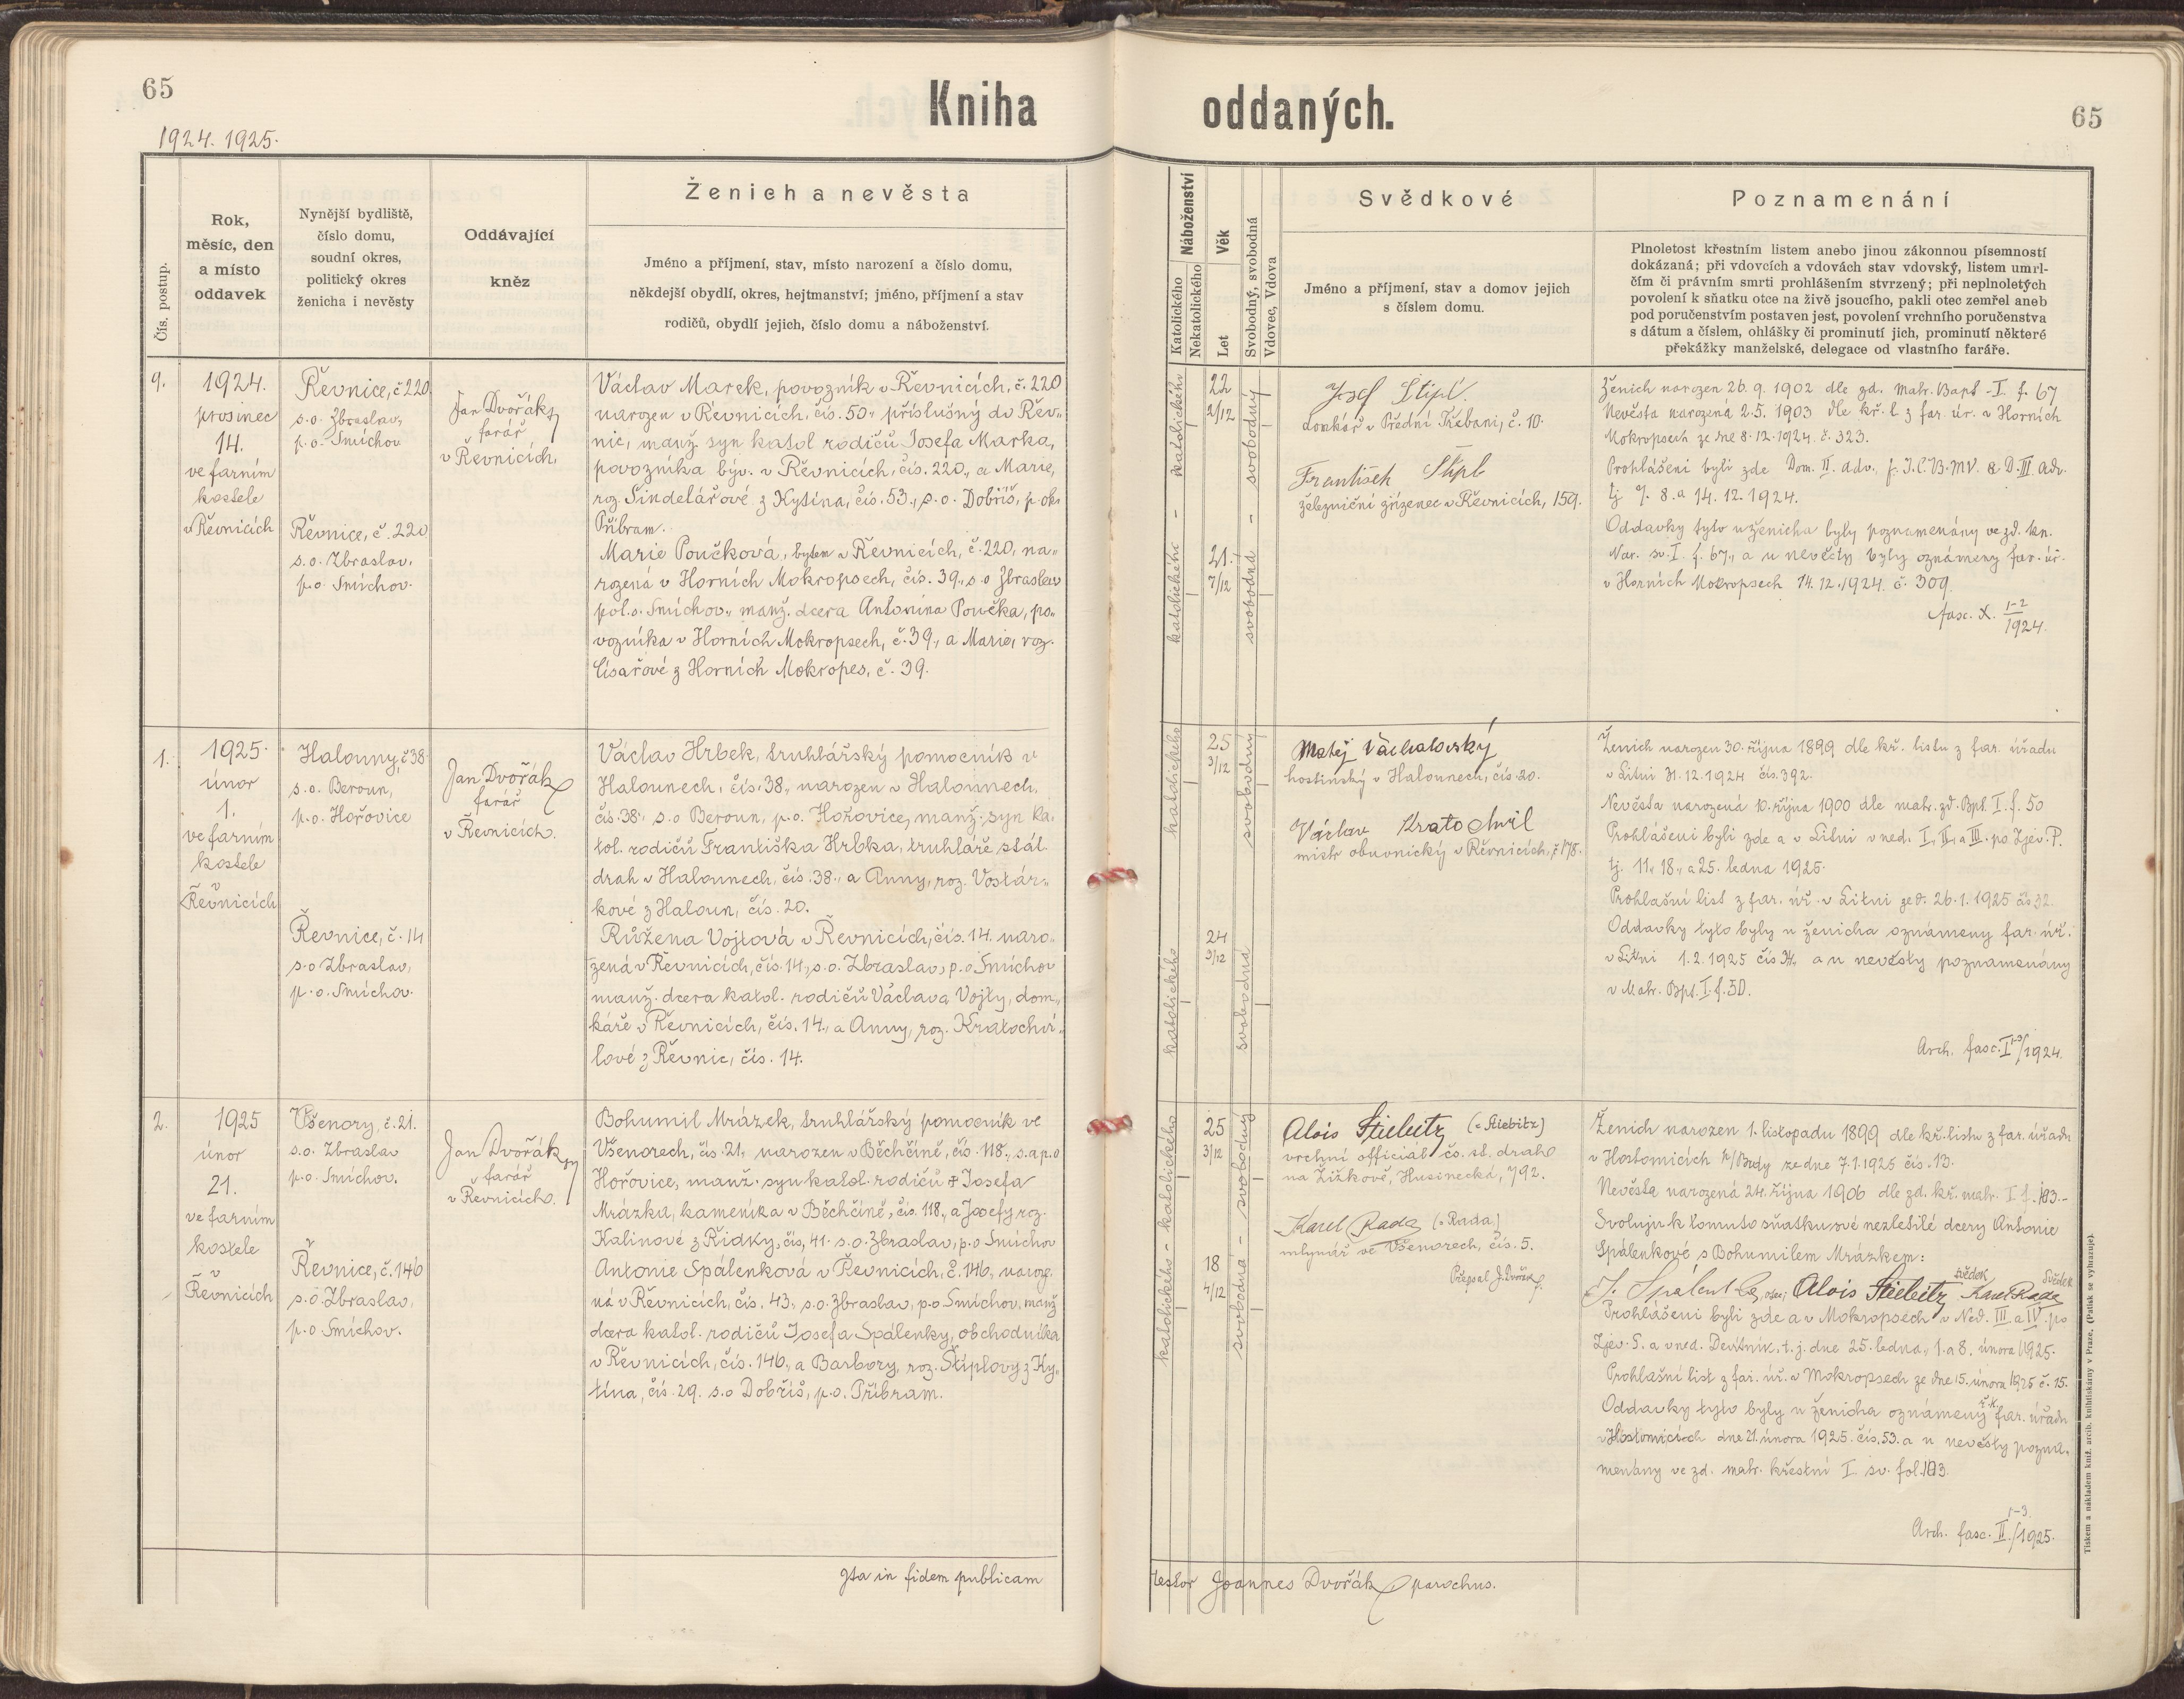 65
Kniha
oddaných.
65
1924. 1925.
Čís. postup.
Rok,
měsíc, den
a místo
oddavek
Nynější bydliště,
číslo domu,
soudní okres,
politický okres
ženicha i nevěsty
Oddávající
kněz
Ženich a nevěsta
Jméno a příjmení, stav, místo narození a číslo domu,
někdejší obydlí, okres, hejtmanství; jméno, příjmení a stav
rodičů, obydlí jejich, číslo domu a náboženství.
Náboženství
Katolického
Nekatolického
Věk
Let
Svobodný, svobodná
Vdovec, Vdova
Svědkové
Jméno a příjmení, stav a domov jejich
s číslem domu.
Poznamenání
Plnoletost křestním listem anebo jinou zákonnou písemností
dokázaná; při vdovcích a vdovách stav vdovský, listem umrl-
čím či právním smrti prohlášením stvrzený; při neplnoletých
povolení k sňatku otce na živě jsoucího, pakli otec zemřel aneb
pod poručenstvím postaven jest, povolení vrchního poručenstva
s dátum a číslem, ohlášky či prominutí jich, prominutí některé
překážky manželské, delegace od vlastního faráře.
9.
1924.
prosinec
14.
ve farním
kostele
v Řevnicích
Řevnice, č 220
s.o. Zbraslav,
p.o. Smíchov
Řevnice, č. 220
s.o. Zbraslav,
p.o Smíchov.
Jan Dvořák
farář
v Řevnicích.
Václav Marek, povozník v Řevnicích, č. 220
narozen v Řevnicích, čís. 50., příslušný do Řev-
nic, manž. syn katol. rodičů Josefa Marka,
povozníka býv. v Řevnicích, čís. 220., a Marie,
roz. Šindelářové z Kytína, čís. 53., s.o. Dobříš, p. ok.
Příbram.
Marie Poučková, bytem v Řevnicích, č. 220, na-
rozená v Horních Mokropsech, čís. 39., s.o Zbraslav
pol.o. Smíchov., manž. dcera Antonína Poučka, po-
vozníka v Horních Mokropsech, č. 39., a Marie, roz.
Císařové z Horních Mokropes, č. 39.
katolického - katolického
22
2/12
21.
7/12
svobodná - svobodný
Josef Štípl.
domkář v Přední Třebani, č. 10.
František Štípl
železniční zřízenec v Řevnicích, 159.
Ženich narozen 26. 9. 1902 dle zd. Matr. Bapt - I. f. 67
Nevěsta narozená 2. 5. 1903 dle kř. l. z far. úr. v Horních
Mokropsech ze dne 8. 12. 1924. č. 323.
Prohlášeni byli zde Dom. II. adv., f. I. C. B. MV. & D. III. adv.
tj 7. 8. a 14. 12. 1924.
Oddavky tyto u ženicha byly poznamenány ve zd. kn.
Nar. sv. I. f. 67., a u nevěsty byly oznámeny far. úř.
v Horních Mokropsech 14. 12. 1924. č. 309.
fasc. X. 1-2/1924.
1.
1925.
únor
1.
ve farním
kostele
v
Řevnicích
Halouny, č 38
s.o. Beroun,
p.o. Hořovice
Řevnice, č. 14
s.o Zbraslav,
p.o. Smíchov.
Jan Dvořák
farář
v Řevnicích.
Václav Hrbek, truhlářský pomocník v
Halounech, čís. 38., narozen v Halounech,
čís. 38., s.o Beroun, p.o. Hořovice, manž. syn ka-
tol. rodičů Františka Hrbka, truhláře stát.
drah v Halounech, čís. 38., a Anny, roz. Vostár-
kové z Haloun, čís. 20.
Růžena Vojtová v Řevnicích, čís. 14. naro-
zená v Řevnicích, čís. 14., s.o. Zbraslav, p.o Smíchov
manž. dcera katol. rodičů Václava Vojty, dom-
káře v Řevnicích, čís. 14., a Anny, roz. Kratochví-
lové z Řevnic, čís. 14.
katolického katolického
25
3/12
24
3/12
svobodná svobodný
Matěj Vachalovský
hostinský v Halounech, čís. 20.
Václav Kratochvil
mistr obuvnický v Řevnicích, č 178.
Ženich narozen 30. října 1899 dle kř. listu z far. úřadu
v Litni 31. 12. 1924 čís. 392.
Nevěsta narozená 10. října 1900 dle matr. zd. Bpt. I. f. 50
Prohlášeni byli zde a v Litni v ned. I., II., a III. po Zjev. P.
tj. 11., 18., a 25. ledna 1925.
Prohlašní list z far. úř. v Litni ze d. 26. 1. 1925 čís 32.
Oddavky tyto byly u ženicha oznámeny far. úř.
v Litni 1. 2. 1925 čís 34., a u nevěsty poznamenány
v Matr. Bpt. I. f. 50.
Arch. fasc. I 1-3/1924.
2.
1925
únor
21.
ve farním
kostele
v
Řevnicích
Všenory, č. 21.
s.o. Zbraslav
p.o. Smíchov.
Řevnice, č. 146
s.o. Zbraslav,
p.o Smíchov.
Jan Dvořák
farář
v Řevnicích.
Bohumil Mrázek, truhlářský pomocník ve
Všenorech, čís. 21., narozen v Běchčíně, čís. 118., s. a p. o
Hořovice, manž. syn katol. rodičů + Josefa
Mrázka, kameníka v Běchčíně, čís. 118., a Josefy roz.
Kalinové z Řidky, čís. 41. s.o. Zbraslav, p.o Smíchov
Antonie Spálenková v Řevnicích, č. 146, naroze-
ná v Řevnicích, čís. 43., s.o. Zbraslav, p.o Smíchov, manž
dcera katol. rodičů Josefa Spálenky, obchodníka
v Řevnicích, čís. 146, a Barbory, roz. Štíplovy z Ky-
tína, čís. 29. s.o Dobříš, p.o. Příbram.
katolického - katolického
25
3/12
18
4/12
svobodná - svobodný
Alois Stiebitz (= Stiebitz)
vrchní officiál čs. st. drah
na Žižkově, Husinecká, 792.
Karel Rada (= Rada)
mlynář ve Všenorech, čís. 5.
Přepsal J. Dvořák
Ženich narozen 1. listopadu 1899 dle kř. listu z far. úřadu
v Hostomicích p/Brdy ze dne 7. 1. 1925 čís. 13.
Nevěsta narozená 24. října 1906 dle zd. kř. matr. I f. 103.-
Svoluju k tomuto sňatku své nezletilé dcery Antonie
Spálenkové s Bohumilem Mrázkem:
svědek svědek
J. Spálenka, otec; Alois Stiebitz Karel Rada
Prohlášeni byli zde a v Mokropsech v Ned. III. a IV. po
Zjev. P. a v ned. Devítník, t. j. dne 25. ledna, 1. a 8. února 1925.
Prohlašní list z far. úř. v Mokropsech ze dne 15. února 1925 č. 15.
Oddavky tyto byly u ženicha oznámeny ř. k. far. úřadu
v Hostomicích dne 21. února 1925. čís. 53. a u nevěsty pozna-
menány ve zd. matr. křestní I. sv. fol. 103.
Arch. fasc. II. 1-3/1925.
Ita in fidem publicam
testor Joannes Dvořák, parochus.
Tiskem a nákladem kníž. arcib. knihtiskárny v Praze. (Patisk se vyhrazuje).